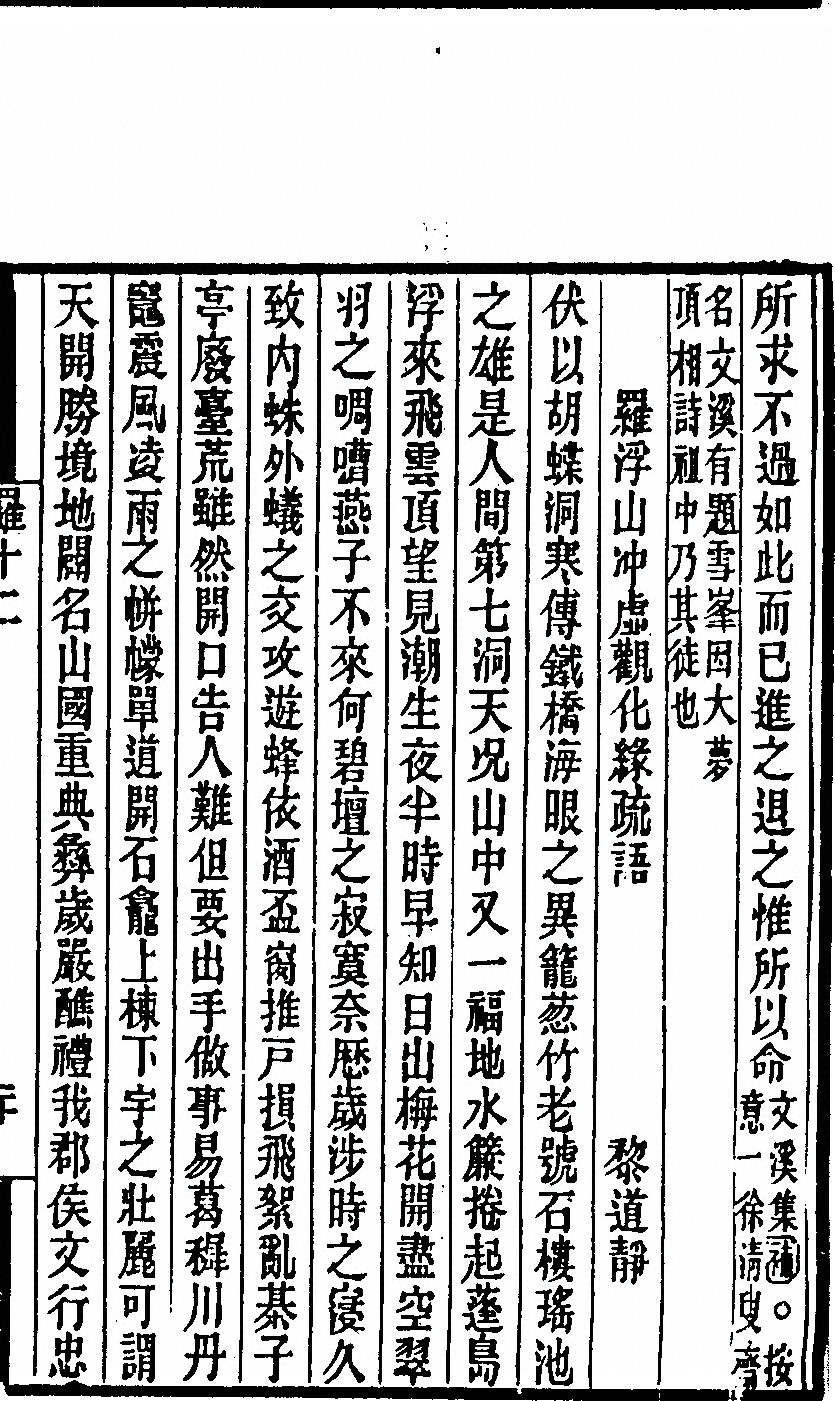 所求不過如此而已進之退之惟所以命文溪集補○按
意一徐清叟齊
名文溪有題雪峯因大夢
頂相詩祖中乃其徒也
羅浮山冲虛觀化緣疏語 黎道靜
伏以胡蝶洞寒傳鐵橋海眼之異籠葱竹老號石樓瑤池
之雄是人間第七洞天況山中又一福地水簾捲起蓬島
浮來飛雲頂望見潮生夜半時早知日出梅花開盡空翠
羽之啁嘈燕子不來何碧壇之寂寞奈歷歲涉時之寖久
致內蛛外蟻之交攻遊蜂依酒盃窗推戶損飛絮亂棊子
亭廢臺荒雖然開口告人難但要出手做事易葛穉川丹
竈震風凌雨之帡幪單道開石龕上棟下宇之壯麗可謂
天開勝境地闢名山國重典彝歲嚴醮禮我郡侯文行忠
羅十二